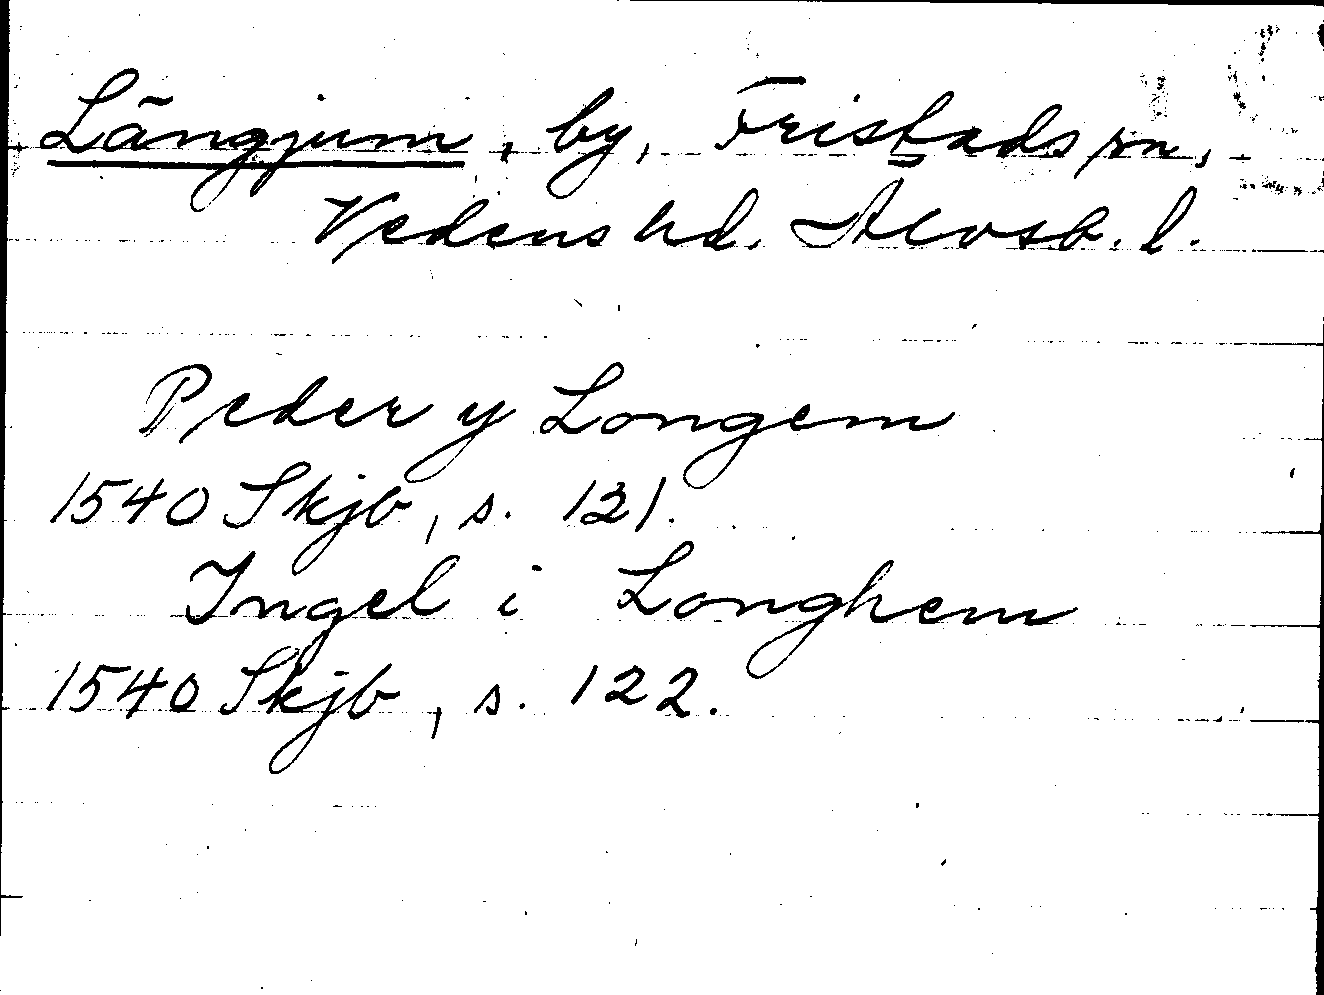 Långjum, by, Fristads sn,
Vedens hd. Älvsb. l.
Peder y Longem
1540 Skjb, s. 121.
Ingel i Longhem
1540 Skjb, s. 122.